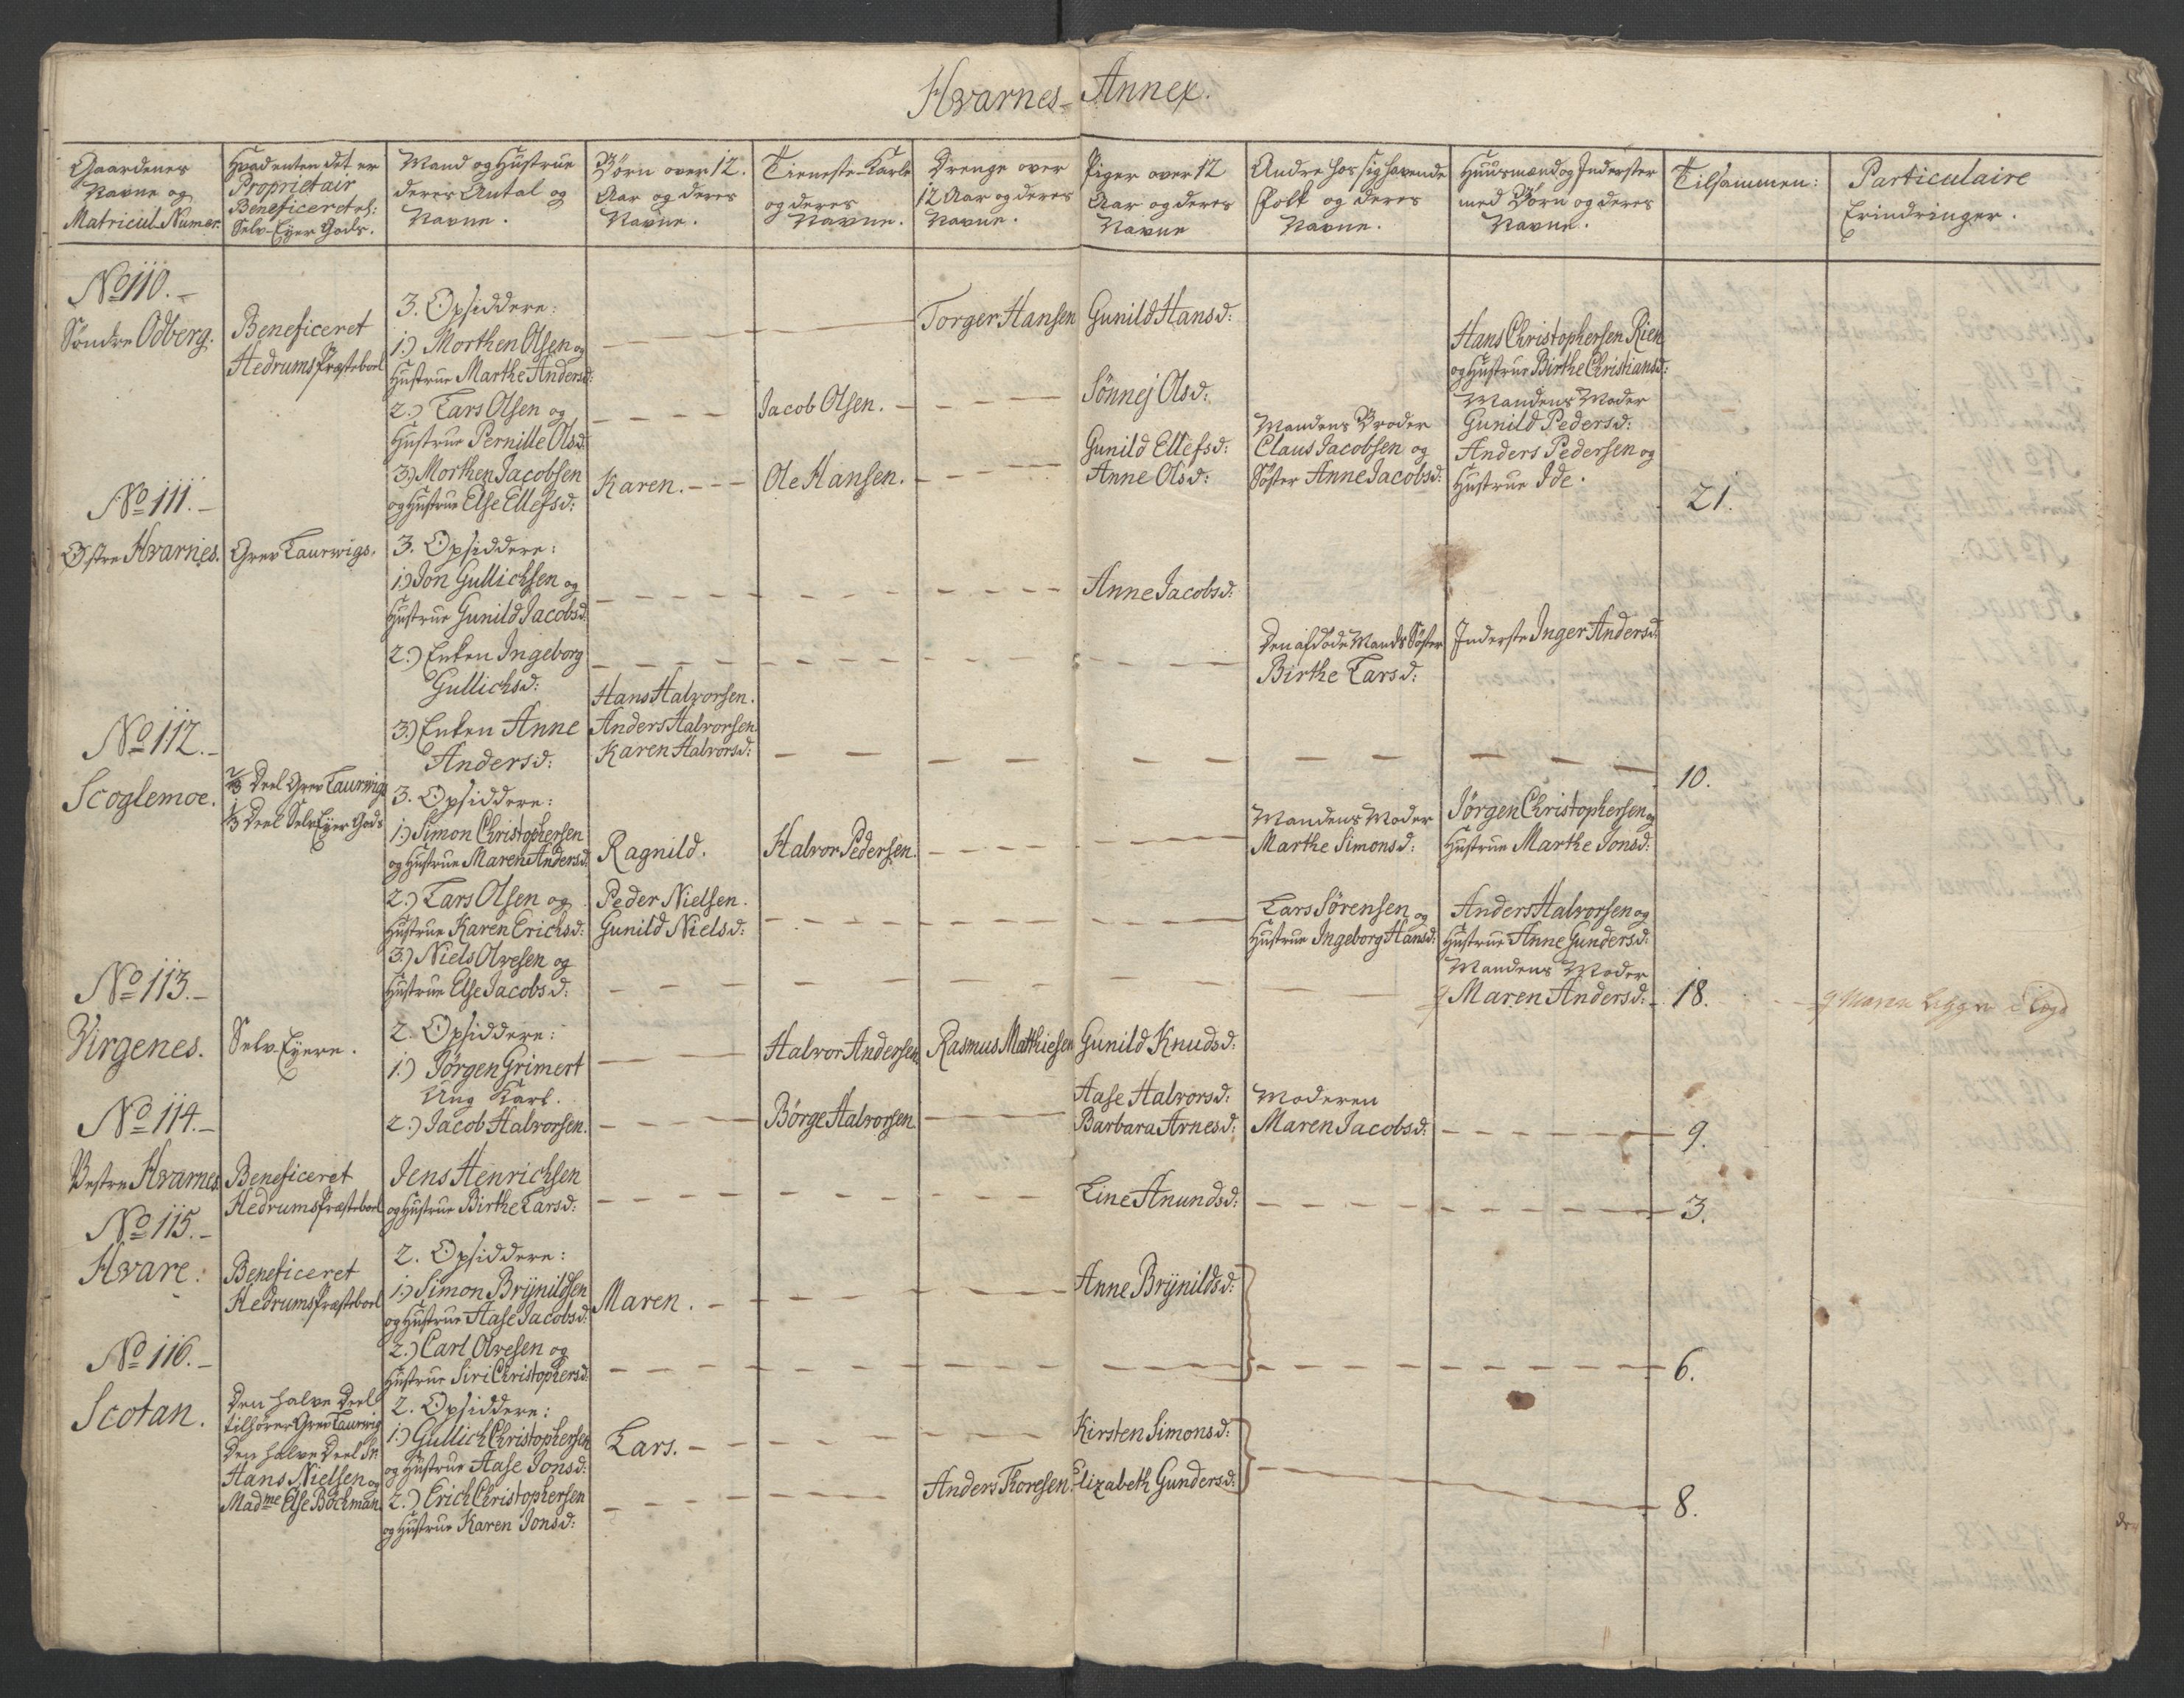 Hvarnes- Annex.
Gaardenes Navne og Matricul-Numer.
Hvad enten det er Proprietair Beneficeret el: Selv-Eyer Gods.
Mand og Hustrue deres Antal og Navne.
Børn over 12. Aar og deres Navne.
Tieneste-Karle og deres Navne.
Drenge over 12 Aar og deres Navne.
Piger over 12 Aar og deres Navne
Andre hos sig havende Folk og deres Navne.
Huusmænd og Inderster med Børn og deres Navne.
Tilsammen:
Particulaire Erindringer.
No 110.-
Søndre Odberg.
Beneficeret
Hedrums Præsteboel
3. Opsiddere:
1.) Morthen Olsen og
Hustrue Marthe Andersd:
Torger Hansen
Gunild Hansd:
Hans Christophersen Rien
og Hustrue Birthe Christiansd:
Mandens Moder
Gunild Pedersd:
Anders Pedersen og
Hustrue Ide.
2.) Lars Olsen og
Hustrue Pernille Olsd:
Jacob Olsen.
Sönnej Olsd:
3.) Morthen Jacobsen
og Hustrue Else Ellefsd:
Karen.
Ole Hansen.
Gunild Ellefsd:
Anne Olsd:
Mandens Broder
Claus Jacobsen og
Søster Anne Jacobsd:
21.
No 111.-
Østre Hvarnes.
Grev Laurwigs.
3. Opsiddere:
1.) Jon Gullichsen og
Hustrue Gunild Jacobsd:
Anne Jacobsd:
2.) Enken Ingeborg
Gullichsd:
Den afdöde Mands Søster
Birthe Larsd:
Inderste Inger Andersd:
3.) Enken Anne
Andersd:
Hans Halvorsen.
Anders Halvorsen
Karen Halvorsd:
10.
No 112.-
Scoglemoe.
2/3 Deel Grev Laurwigs
1/3 Deel Selv Eyer Gods
3. Opsiddere:
1.) Simon Christophersen
og Hustrue Maren Andersd:
Ragnild.
Halvor Pedersen.
Mandens Moder
Marthe Simonsd:
Jörgen Christophersen og
Hustrue Marthe Jonsd:
2.) Lars Olsen og
Hustrue Karen Erichsd:
Peder Nielsen.
Gunild Nielsd:
Lars Sörensen og
Hustrue Ingeborg Hansd:
Anders Halvorsen og
Hustrue Anne Gundersd:
Mandens Moder
Maren Andersd:
3.) Niels Olvesen og
Hustrue Else Jacobsd:
18.
Maren ligger i Lægd
No 113.-
Virgenes.
Selv-Eyere.
2. Opsiddere:
1.) Jörgen Grimert
Ung Karl.
Halvor Andersen
Rasmus Matthiesen
Gunild Knudsd:
2.) Jacob Halvorsen.
Börge Halvorsen
Aase Halvorsd:
Barbara Arnesd:
Moderen
Maren Jacobsd:
9.
No 114.-
Vestre Hvarnes
Beneficeret
Hedrums Præsteboel
Jens Henrichsen
og Hustrue Birthe Larsd:
Line Anundsd:
3.
No 115.-
Hvare.
Beneficeret
Hedrums Præsteboel
2. Opsiddere:
1.) Simon Brÿnildsen
og Hustrue Aase Jacobsd:
Maren.
Anne Brÿnildsd:
2.) Carl Olvesen og
Hustrue Siri Christophersd:
6.
No 116.-
Scotan.
Den halve Deel
tilhører Grev Laurwig
Den halve Deel Sr.
Hans Nielsen og
Madme Else Böchman
2. Opsiddere:
1.) Gullich Christophersen
og Hustrue Aase Jonsd:
Lars.
Kirsten Simonsd:
2.) Erich Christophersen
og Hustrue Karen Jonsd:
Anders Thoresen.
Elizabeth Gundersd:
8.